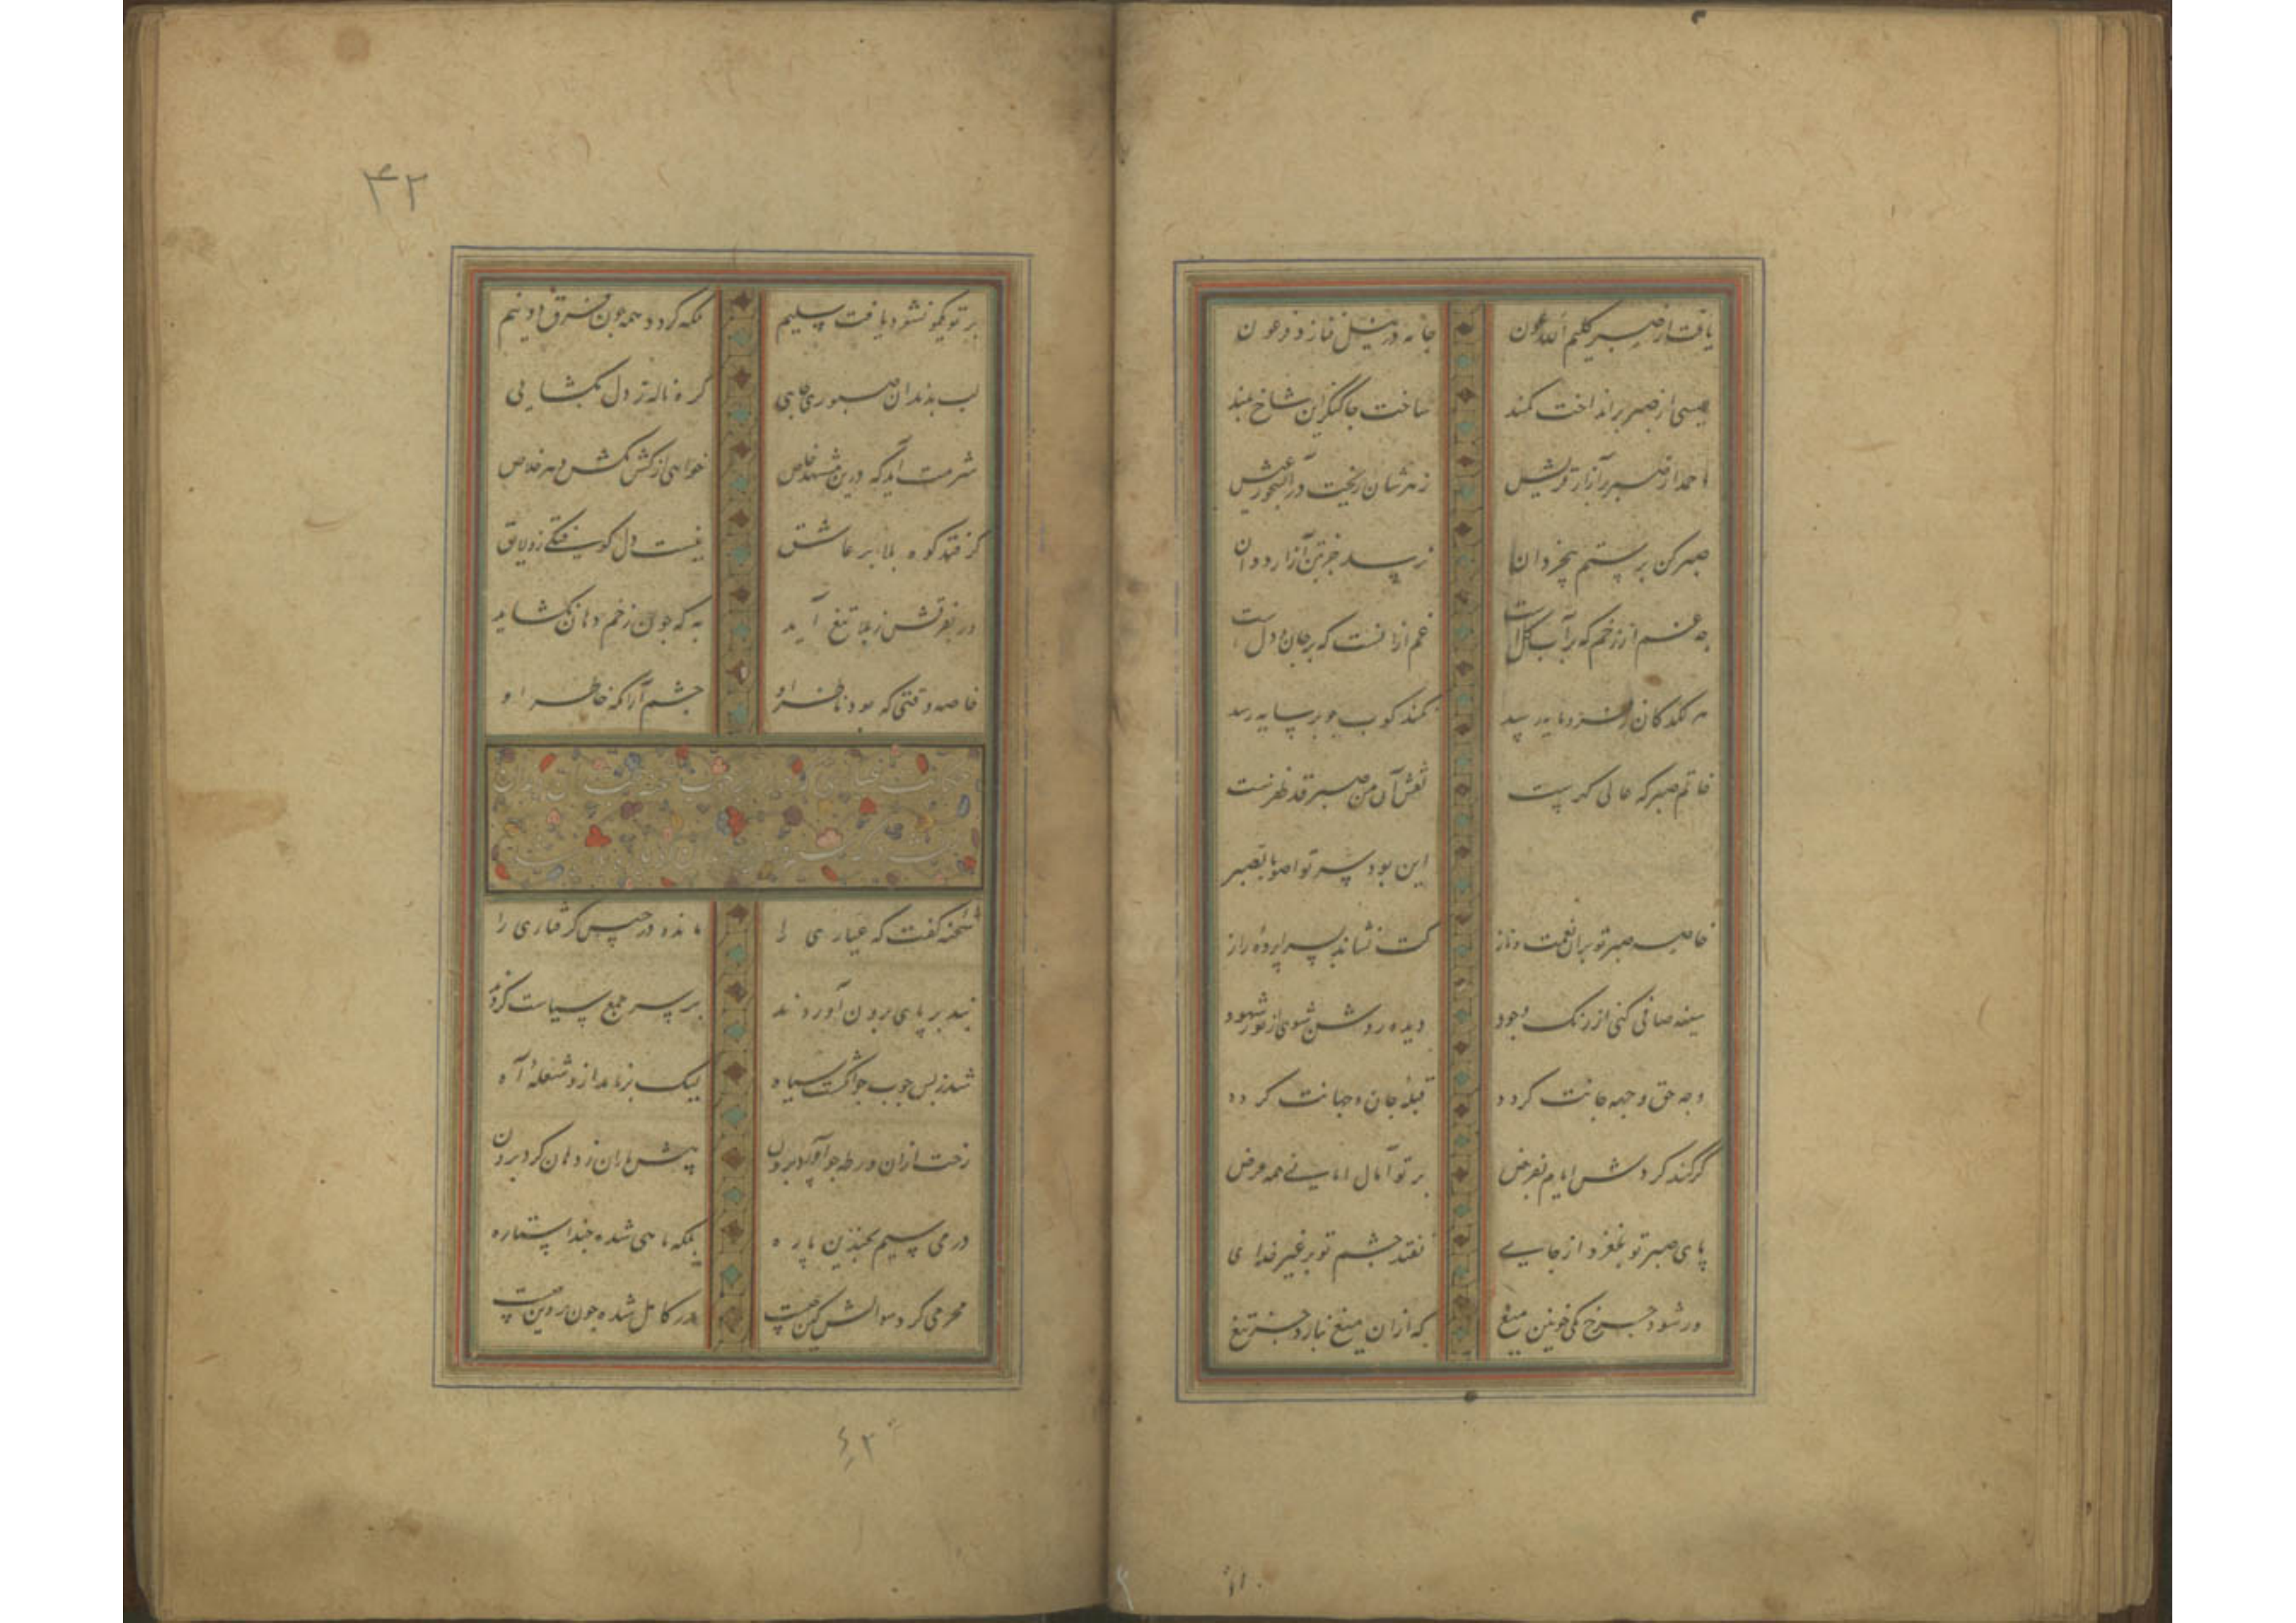 یافت از صبر کلیم الله عون
جا نه در نیل فنا زد فرعون
عیسی از صبر برانداخت کمند
ساخت جا کنگر این شاخ بلند
احمد از صبر بر آزار قریش
زهرشان ریخت در آبخور عیش
صبر کن بر ستم بیخردان
نرسد جز بتن آزار ددان
چه غم از زخم که بر آب و گل است
غم ازانست که بر جان و دل است
سایه رسد
خاتم صبر که عالی کهریست
نقش آن من صبر قد ظفرست
این بود سر تواصوا بالصبر
خاصیه صبر تو بران نعمت و ناز
کت نشاند بسراپرده راز
سینه صافی کنی از زنک وجود
دیده روشن شوی از نور شهود
وجه حق وجهه جانت کردد
قبله جان و جهانت کردد
گر کند کردش ایام بفرض
بر تو آمال امانی همه عرض
پای صبر تو نلغزد از جای
نفتد چشم تو بر غیر خدای
ور شود چرخ یکی خونین میغ
که ازان میغ نبارد جز تیغ
۴۲
بر تو یکمو نشود یافت سلیم
بلکه کردد همه چون فرق دو نیم
لب بدندان صبوری خایی
کره ناله ز دل نکشایی
شرمت آید که درین مشهد خاص
خواهی از کشمکش دهر خلاص
گر فتد کوه بلا بر عاشق
نیست دل کوفتکی زو لایق
ور بفرقش ز بلا تیغ آید
به که چون زخم دهان نکشاید
خاصه وقتی که بود ناظر او
چشم آرامکه خاطر او
شحنه گفت که عیاری را
مانده در حبس کرفتاری را
بند بر پای برون آوردند
بر سر جمع سیاست کردند
شد ز بس چوب چو انکشت سیاه
لیک بر نامد ازو شعله آه
رخت ازان ورطه چو آورد برون
پیش یاران ز دهان کرد برون
درمی سیم بچندین پاره
بلکه ماهی شده چند استاره
محرمی کرد سوالش کین چیست
بدر کامل شده چون پروین چیست